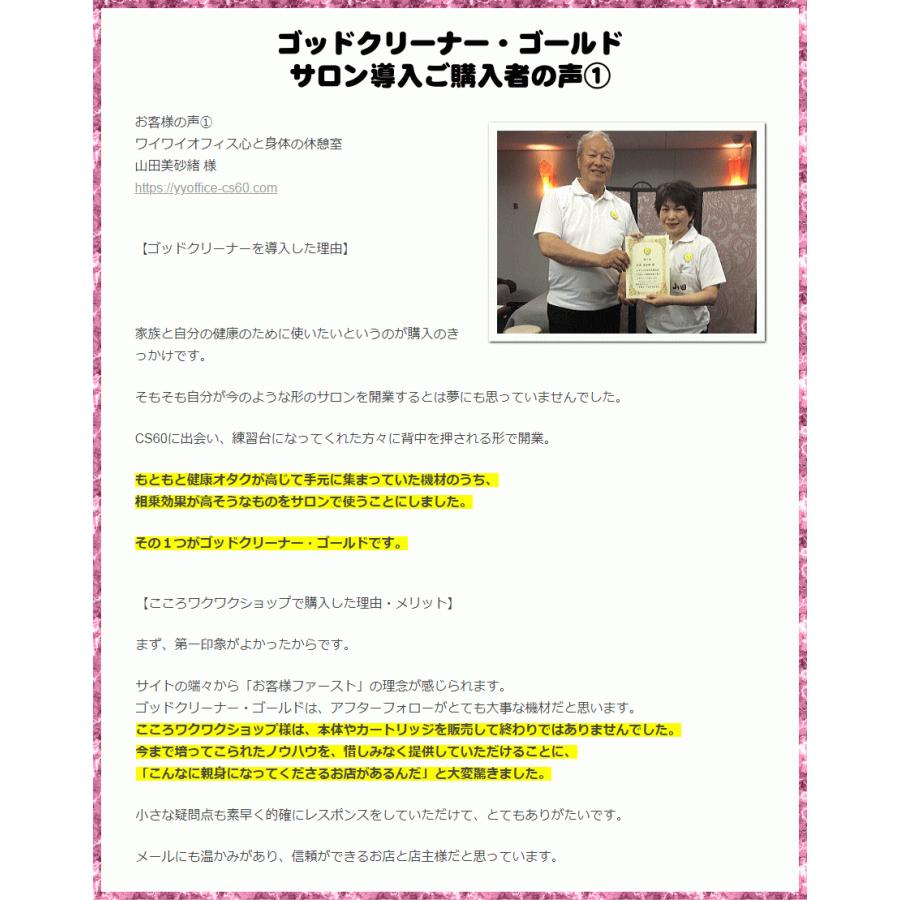 ゴッドクリーナー・ゴールド
サロン導入ご購入者の声①
お客様の声①
ワイワイオフィス心と身体の休憩室
山田美砂緒 様
https://yyoffice-cs60.com
【ゴッドクリーナーを導入した理由】
山田
家族と自分の健康のために使いたいというのが購入のき
っかけです。
そもそも自分が今のような形のサロンを開業するとは夢にも思っていませんでした。
CS60に出会い、練習台になってくれた方々に背中を押される形で開業。
もともと健康オタクが高じて手元に集まっていた機材のうち、
相乗効果が高そうなものをサロンで使うことにしました。
その１つがゴッドクリーナー・ゴールドです。
【こころワクワクショップで購入した理由・メリット】
まず、第一印象がよかったからです。
サイトの端々から「お客様ファースト」の理念が感じられます。
ゴッドクリーナー・ゴールドは、アフターフォローがとても大事な機材だと思います。
こころワクワクショップ様は、本体やカートリッジを販売して終わりではありませんでした。
今まで培ってこられたノウハウを、惜しみなく提供していただけることに、
「こんなに親身になってくださるお店があるんだ」と大変驚きました。
小さな疑問点も素早く的確にレスポンスをしていただけて、とてもありがたいです。
メールにも温かみがあり、信頼ができるお店と店主様だと思っています。